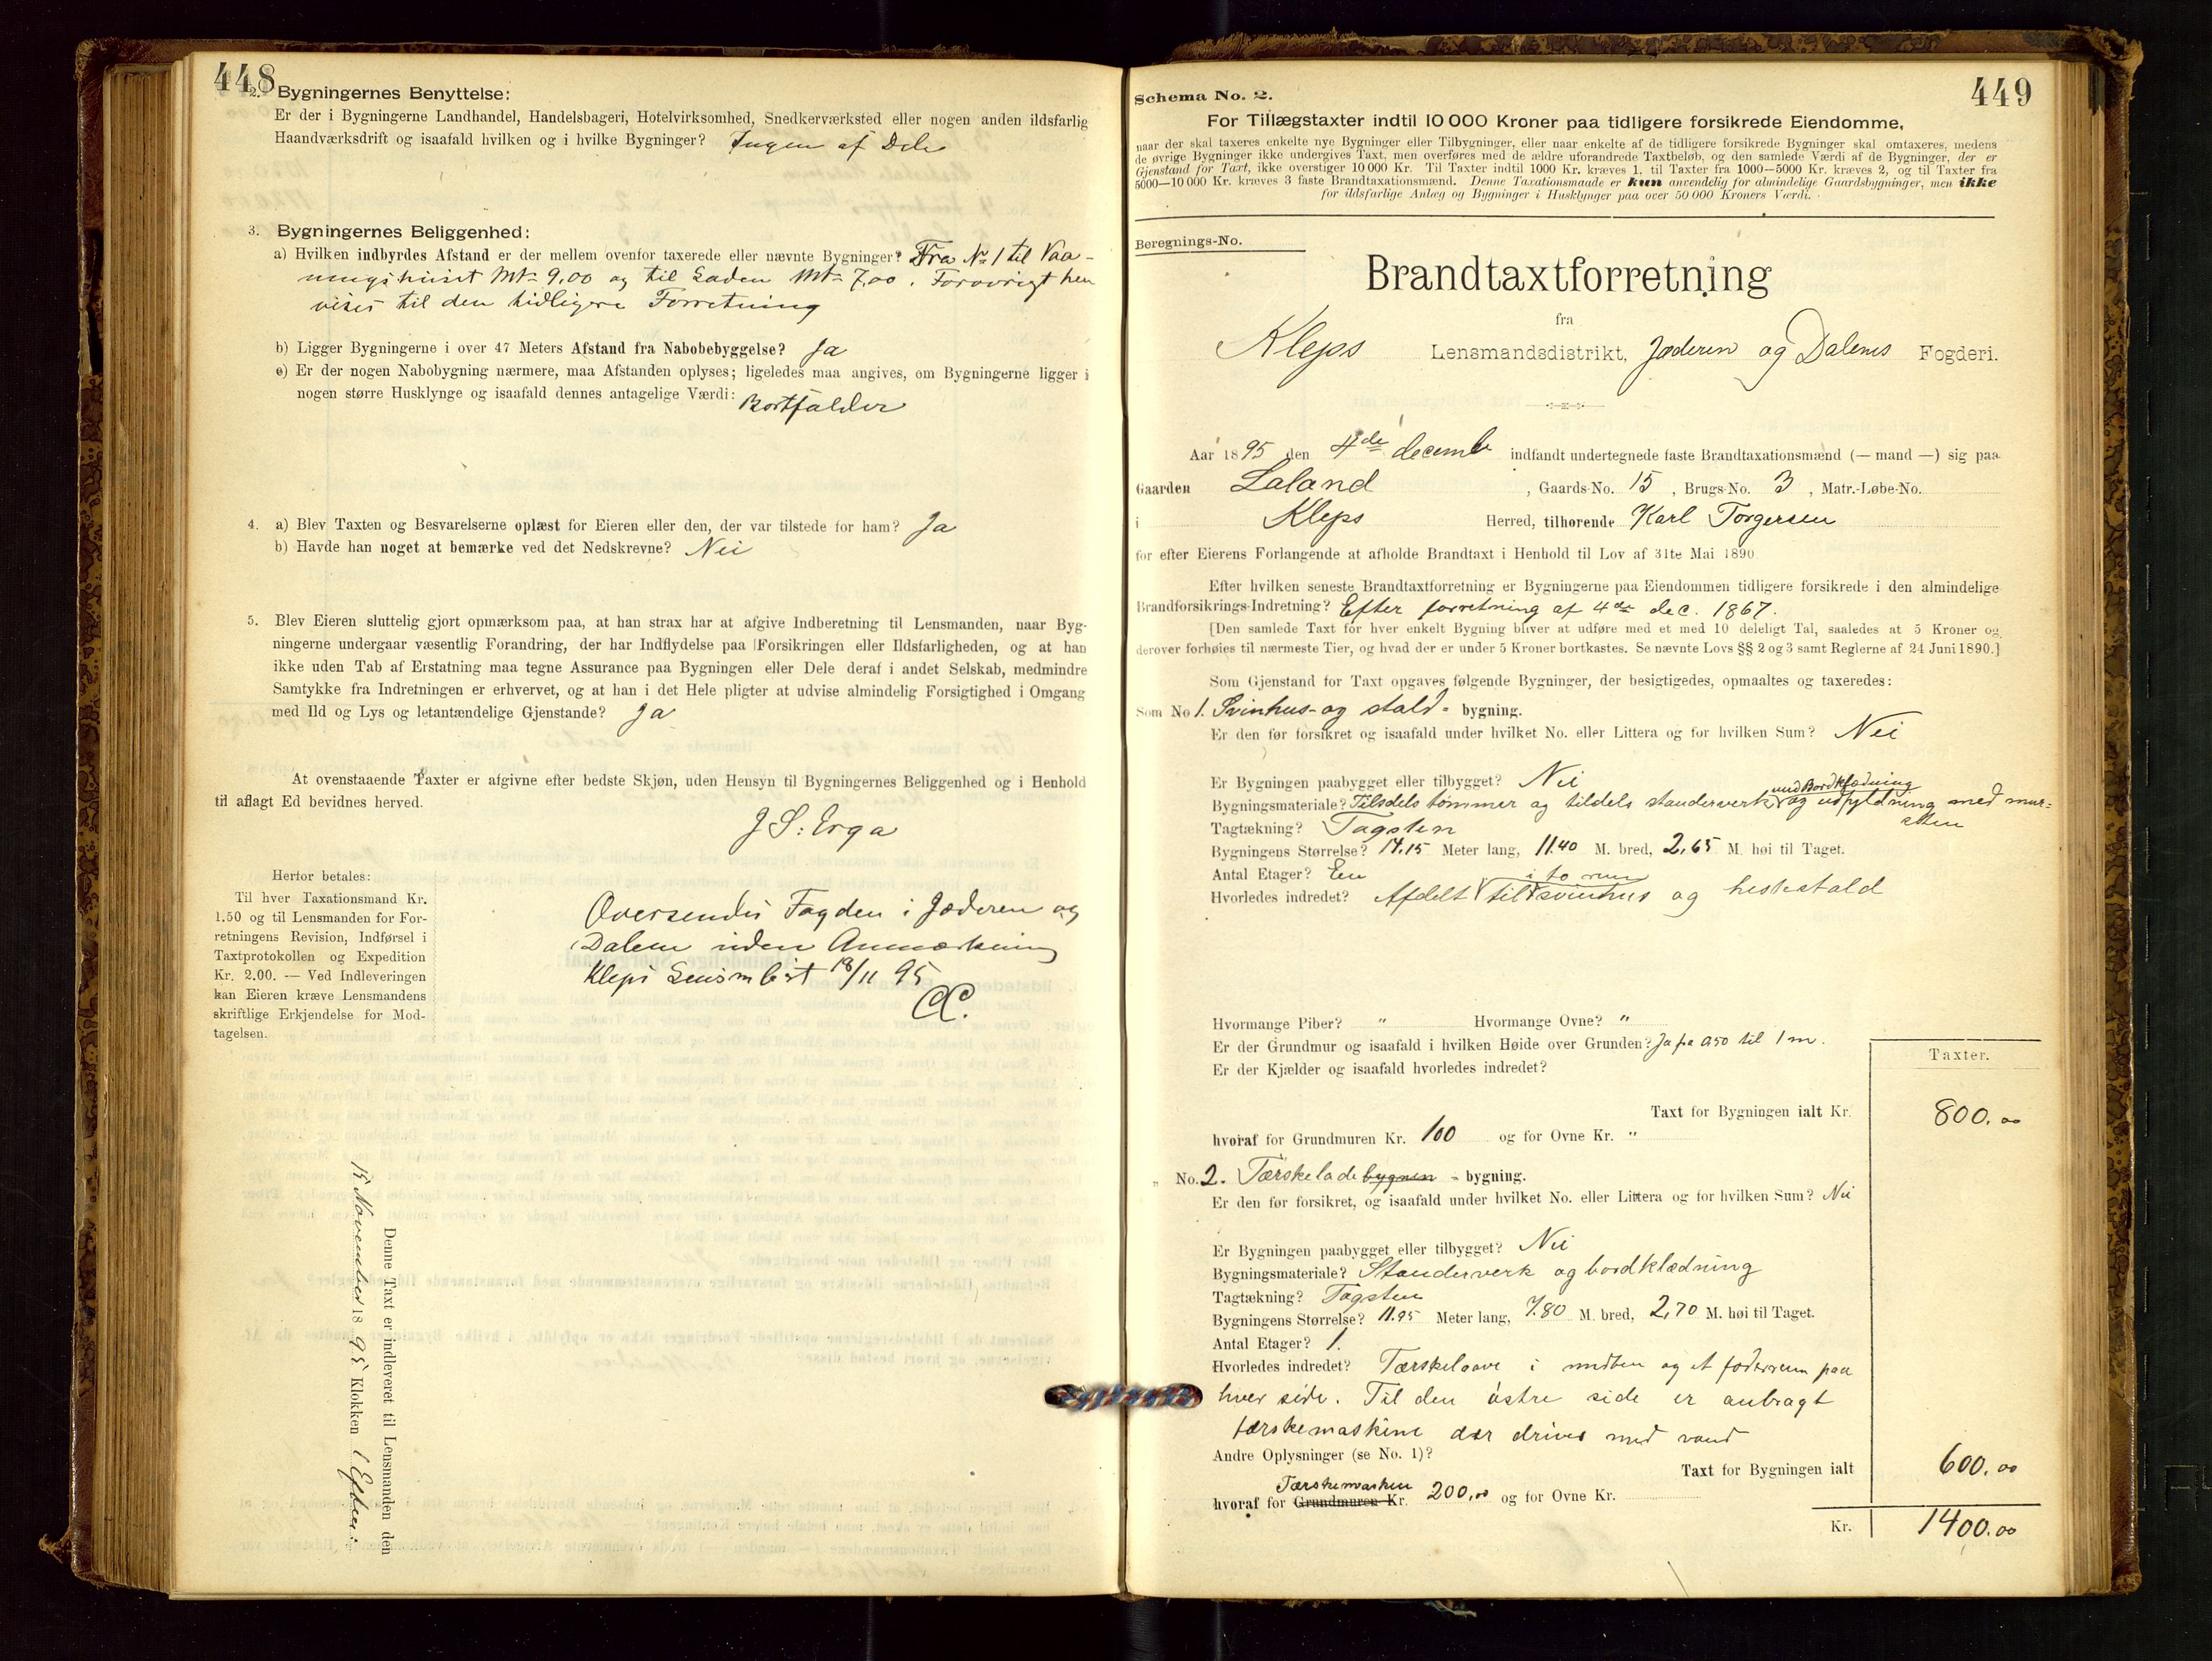 448
2. Bygningernes Benyttelse:
Er der i Bygningerne Landhandel, Handelsbageri, Hotelvirksomhed, Snedkerværksted eller nogen anden ildsfarlig
Haandværksdrift og isaafald hvilken og i hvilke Bygninger? Ingen af Dele
3. Bygningernes Beliggenhed:
a) Hvilken indbyrdes Afstand er der mellem ovenfor taxerede eller nævnte Bygninger? Fra No 1 til Vaa-
ningshuset Mt. 9,00 og til Laden Mt. 7,00. Forøvrigt hen
vises til den tidligere Forretning
b) Ligger Bygningerne i over 47 Meters Afstand fra Nabobebyggelse? Ja
c) Er der nogen Nabobygning nærmere, maa Afstanden oplyses; ligeledes maa angives, om Bygningerne ligger i
nogen større Husklynge og isaafald dennes antagelige Værdi: Bortfalder
4. a) Blev Taxten og Besvarelserne oplæst for Eieren eller den, der var tilstede for ham? Ja
b) Havde han noget at bemærke ved det Nedskrevne? Nei
5. Blev Eieren sluttelig gjort opmærksom paa, at han strax har at afgive Indberetning til Lensmanden, naar Byg-
ningerne undergaar væsentlig Forandring, der har Indflydelse paa Forsikringen eller Ildsfarligheden, og at han
ikke uden Tab af Erstatning maa tegne Assurance paa Bygningen eller Dele deraf i andet Selskab, medmindre
Samtykke fra Indretningen er erhvervet, og at han i det Hele pligter at udvise almindelig Forsigtighed i Omgang
med Ild og Lys og letantændelige Gjenstande? Ja
At ovenstaaende Taxter er afgivne efter bedste Skjøn, uden Hensyn til Bygningernes Beliggenhed og i Henhold
til aflagt Ed bevidnes herved.
J S: Erga
Herfor betales:
Til hver Taxationsmand Kr.
1.50 og til Lensmanden for For-
retningens Revision, Indførsel i
Taxtprotokollen og Expedition
Kr. 2.00. — Ved Indleveringen
kan Eieren kræve Lensmandens
skriftlige Erkjendelse for Mod-
tagelsen.
Oversendes Fogden i Jæderen og
Dalene uden Anmærkning
Kleps Lensmbest 18/11 95
Denne Taxt er indleveret til Lensmanden den
15 November 1895 Klokken 1 Efter:
449
Schema No. 2.
For Tillægstaxter indtil 10 000 Kroner paa tidligere forsikrede Eiendomme,
naar der skal taxeres enkelte nye Bygninger eller Tilbygninger, eller naar enkelte af de tidligere forsikrede Bygninger skal omtaxeres, medens
de øvrige Bygninger ikke undergives Taxt, men overføres med de ældre uforandrede Taxtbeløb, og den samlede Værdi af de Bygninger, der er
Gjenstand for Taxt, ikke overstiger 10 000 Kr. Til Taxter indtil 1000 Kr. kræves 1, til Taxter fra 1000—5000 Kr. kræves 2, og til Taxter fra
5000—10 000 Kr. kræves 3 faste Brandtaxationsmænd. Denne Taxationsmaade er kun anvendelig for almindelige Gaardsbygninger, men ikke
for ildsfarlige Anlæg og Bygninger i Husklynger paa over 50 000 Kroners Værdi.
Beregnings-No.
Brandtaxtforretning
fra
Kleps Lensmandsdistrikt, Jæderen og Dalenes Fogderi.
Aar 1895 den 4de decemb indfandt undertegnede faste Brandtaxationsmænd (— mand —) sig paa
Gaarden Laland, Gaards-No. 15, Brugs-No. 3, Matr.-Løbe-No.
i Kleps Herred, tilhørende Karl Torgersen
for efter Eierens Forlangende at afholde Brandtaxt i Henhold til Lov af 31te Mai 1890
Efter hvilken seneste Brandtaxtforretning er Bygningerne paa Eiendommen tidligere forsikrede i den almindelige
Brandforsikrings-Indretning? Efter forretning af 4de dec. 1867.
[Den samlede Taxt for hver enkelt Bygning bliver at udføre med et med 10 deleligt Tal, saaledes at 5 Kroner og
derover forhøies til nærmeste Tier, og hvad der er under 5 Kroner bortkastes. Se nævnte Lovs §§ 2 og 3 samt Reglerne af 24 Juni 1890.]
Som Gjenstand for Taxt opgaves følgende Bygninger, der besigtigedes, opmaaltes og taxeredes:
Som No 1. Svinhus- og stald- bygning.
Er den før forsikret og isaafald under hvilket No. eller Littera og for hvilken Sum? Nei
Er Bygningen paabygget eller tilbygget? Nei
med Bordklædning
Bygningsmateriale? Tilsdels tømmer og tildels standerverk og udfyldning med mur-
sten
Tagtækning? Tagsten
Bygningens Størrelse? 14.15 Meter lang, 11.40 M. bred, 2,65 M. høi til Taget.
Antal Etager? En
i to rum
Hvorledes indredet? Afdelt til svinhus og hestestald
Hvormange Piber? " Hvormange Ovne? "
Er der Grundmur og isaafald i hvilken Høide over Grunden? Ja fra 0.50 til 1 m.
Er der Kjælder og isaafald hvorledes indredet?
Taxter.
Taxt for Bygningen ialt Kr. 800.00
hvoraf for Grundmuren Kr. 100 og for Ovne Kr. "
" No. 2. Tærskeladebygnen - bygning.
Er den før forsikret, og isaafald under hvilket No. eller Littera og for hvilken Sum? Nei
Er Bygningen paabygget eller tilbygget? Nei
Bygningsmateriale? Standerverk og bordklædning
Tagtækning? Tagsten
Bygningens Størrelse? 11.95 Meter lang, 7.80 M. bred, 2,70 M. høi til Taget.
Antal Etager? 1.
Hvorledes indredet? Tærskelaave i midten og et foderrum paa
hver side. Til den østre side er anbragt
tærskemaskine der drives med vand
Andre Oplysninger (se No. 1)?
Taxt for Bygningen ialt 600.00
Tærskemasken
hvoraf for Grundmuren Kr. 200,00 og for Ovne Kr.
Kr. 1400.00